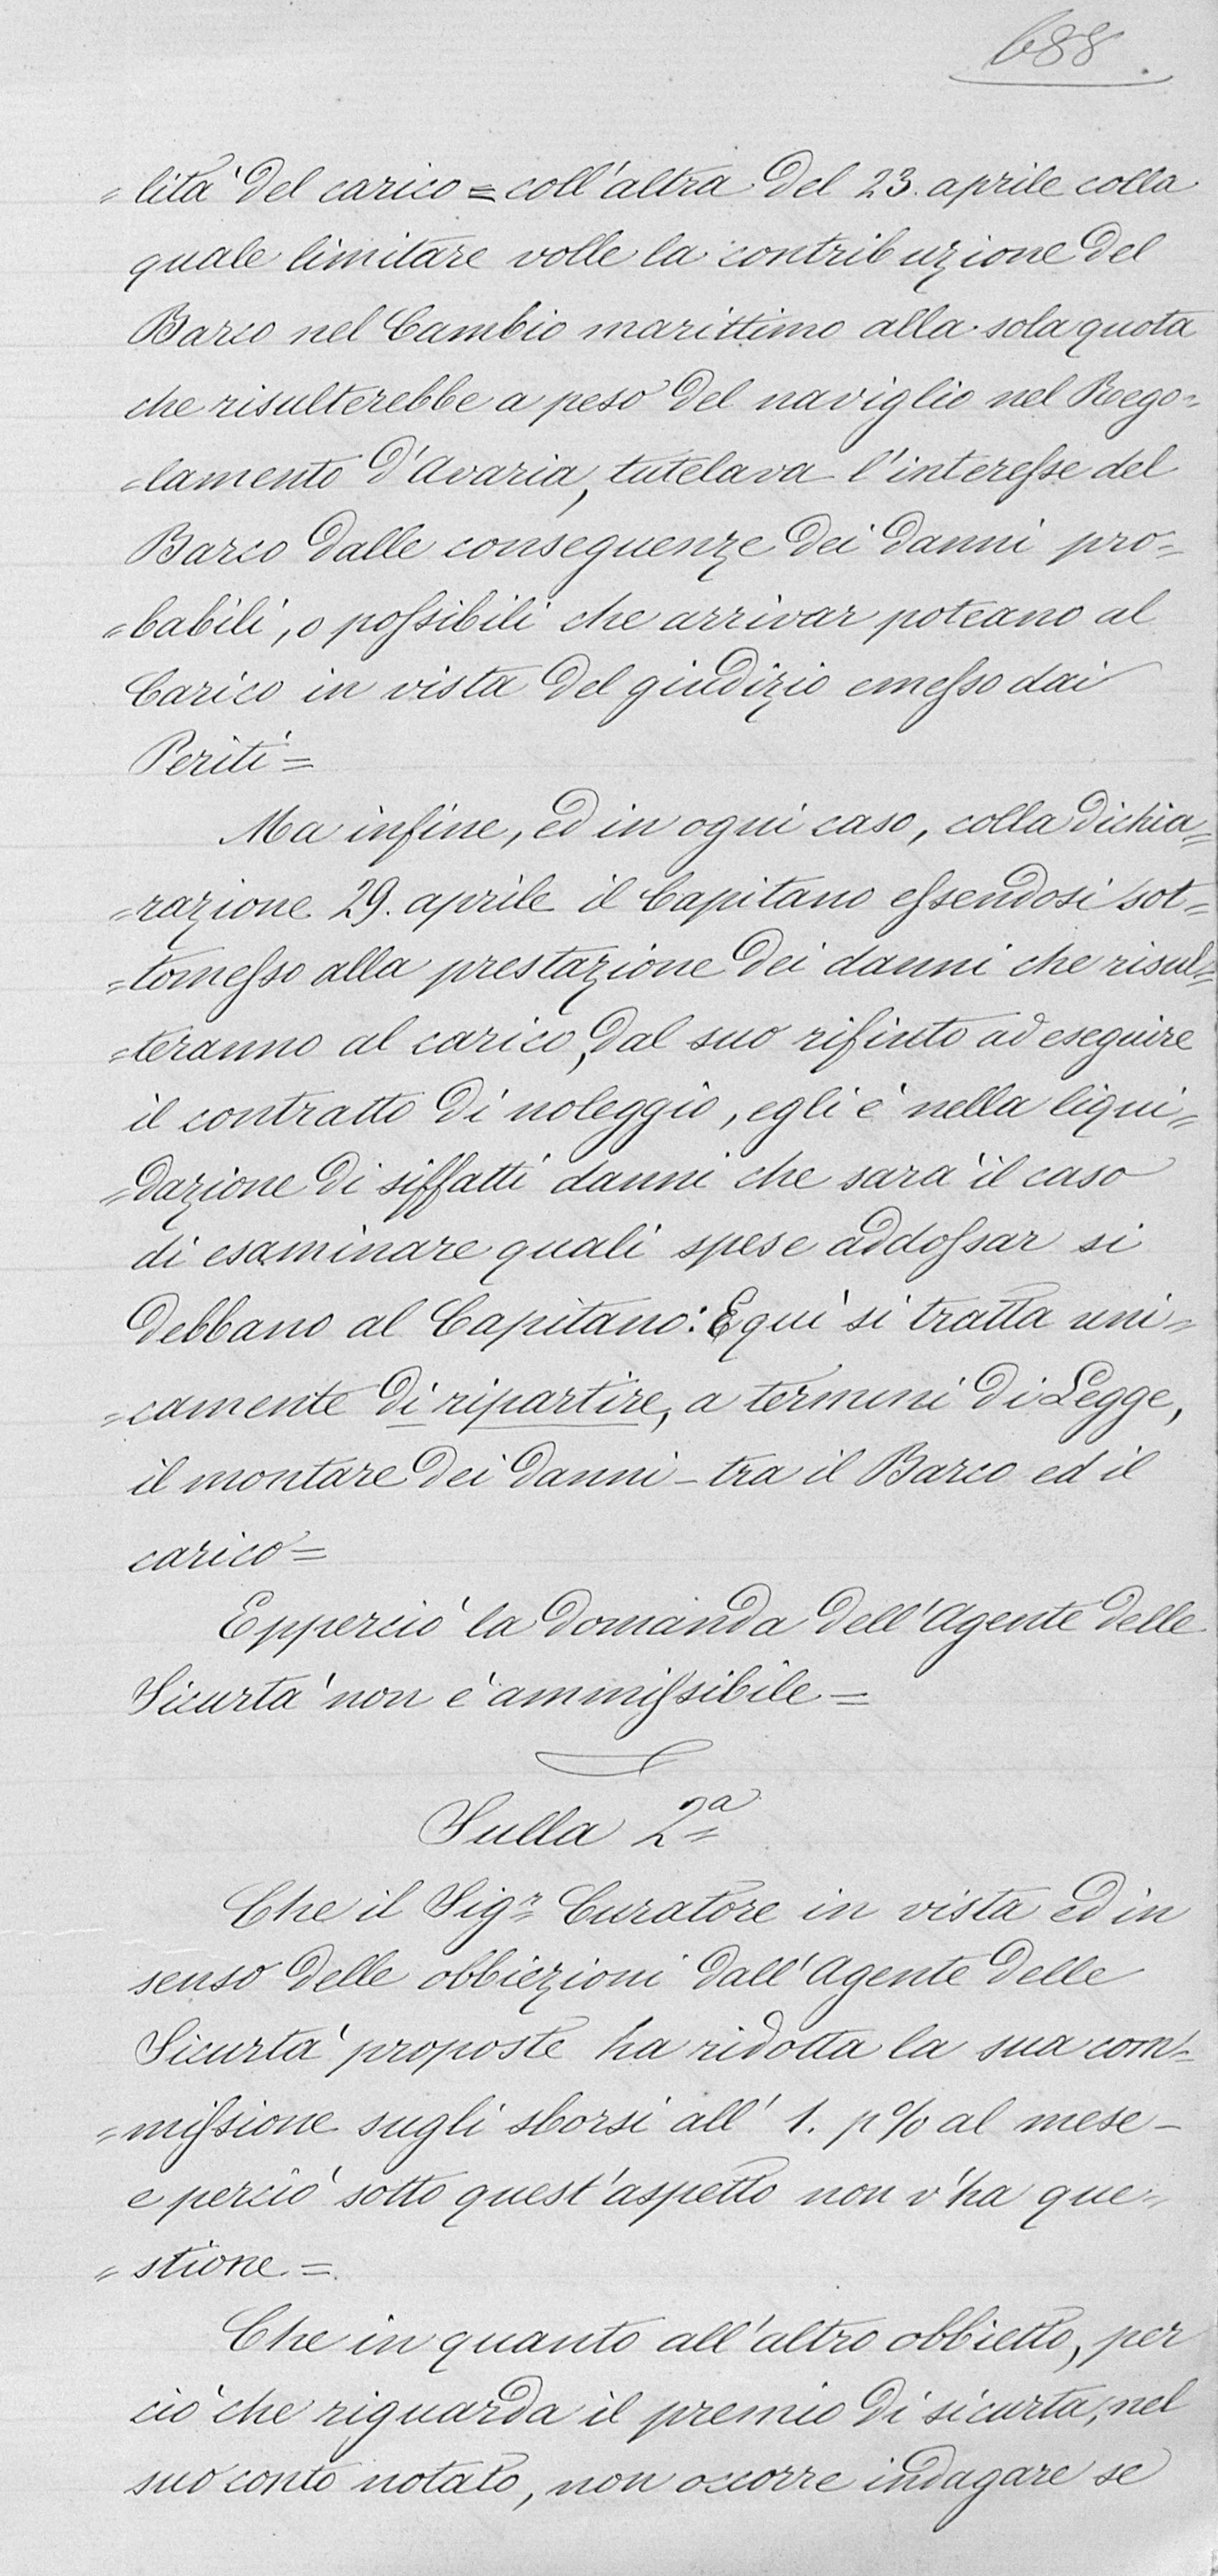 688.
=lità del carico = coll'altra del 23. aprile colla
quale limitare volle la contribuzione del
Barco nel Cambio marittimo alla sola quota
che risulterebbe a peso del naviglio nel Rego=
=lamento d'Avaria, tutelava l'interesse del
Barco dalle conseguenze dei danni pro=
=babili, o possibili che arrivar poteano al
Carico in vista del giudizio emesso dai
Periti =
Ma infine, ed in ogni caso, colla dichia=
=razione 29. aprile il Capitano essendosi sot=
=tomesso alla prestazione dei danni che risul=
=teranno al carico, dal suo rifiuto ad eseguire
il contratto di noleggio, egli è nella liqui=
=dazione di siffatti danni che sarà il caso
di esaminare quali spese addossar si
debbano al Capitano: E quì si tratta uni=
=camente di ripartire, a termini di Legge,
il montare dei danni - tra il Barco ed il
carico =
Epperciò la domanda dell'Agente delle
Sicurtà non è ammissibile =
Sulla 2ª
Che il Sigr Curatore in vista ed in
senso delle obbiezioni dall'Agente delle
Sicurtà proposte ha ridotta la sua com=
=missione sugli sborsi all' 1. p% al mese -
e perciò sotto quest'aspetto non v'ha que=
=stione. =
Che in quanto all'altro obbietto, per
ciò che riguarda il premio di sicurtà, nel
suo conto notato, non occorre indagare se